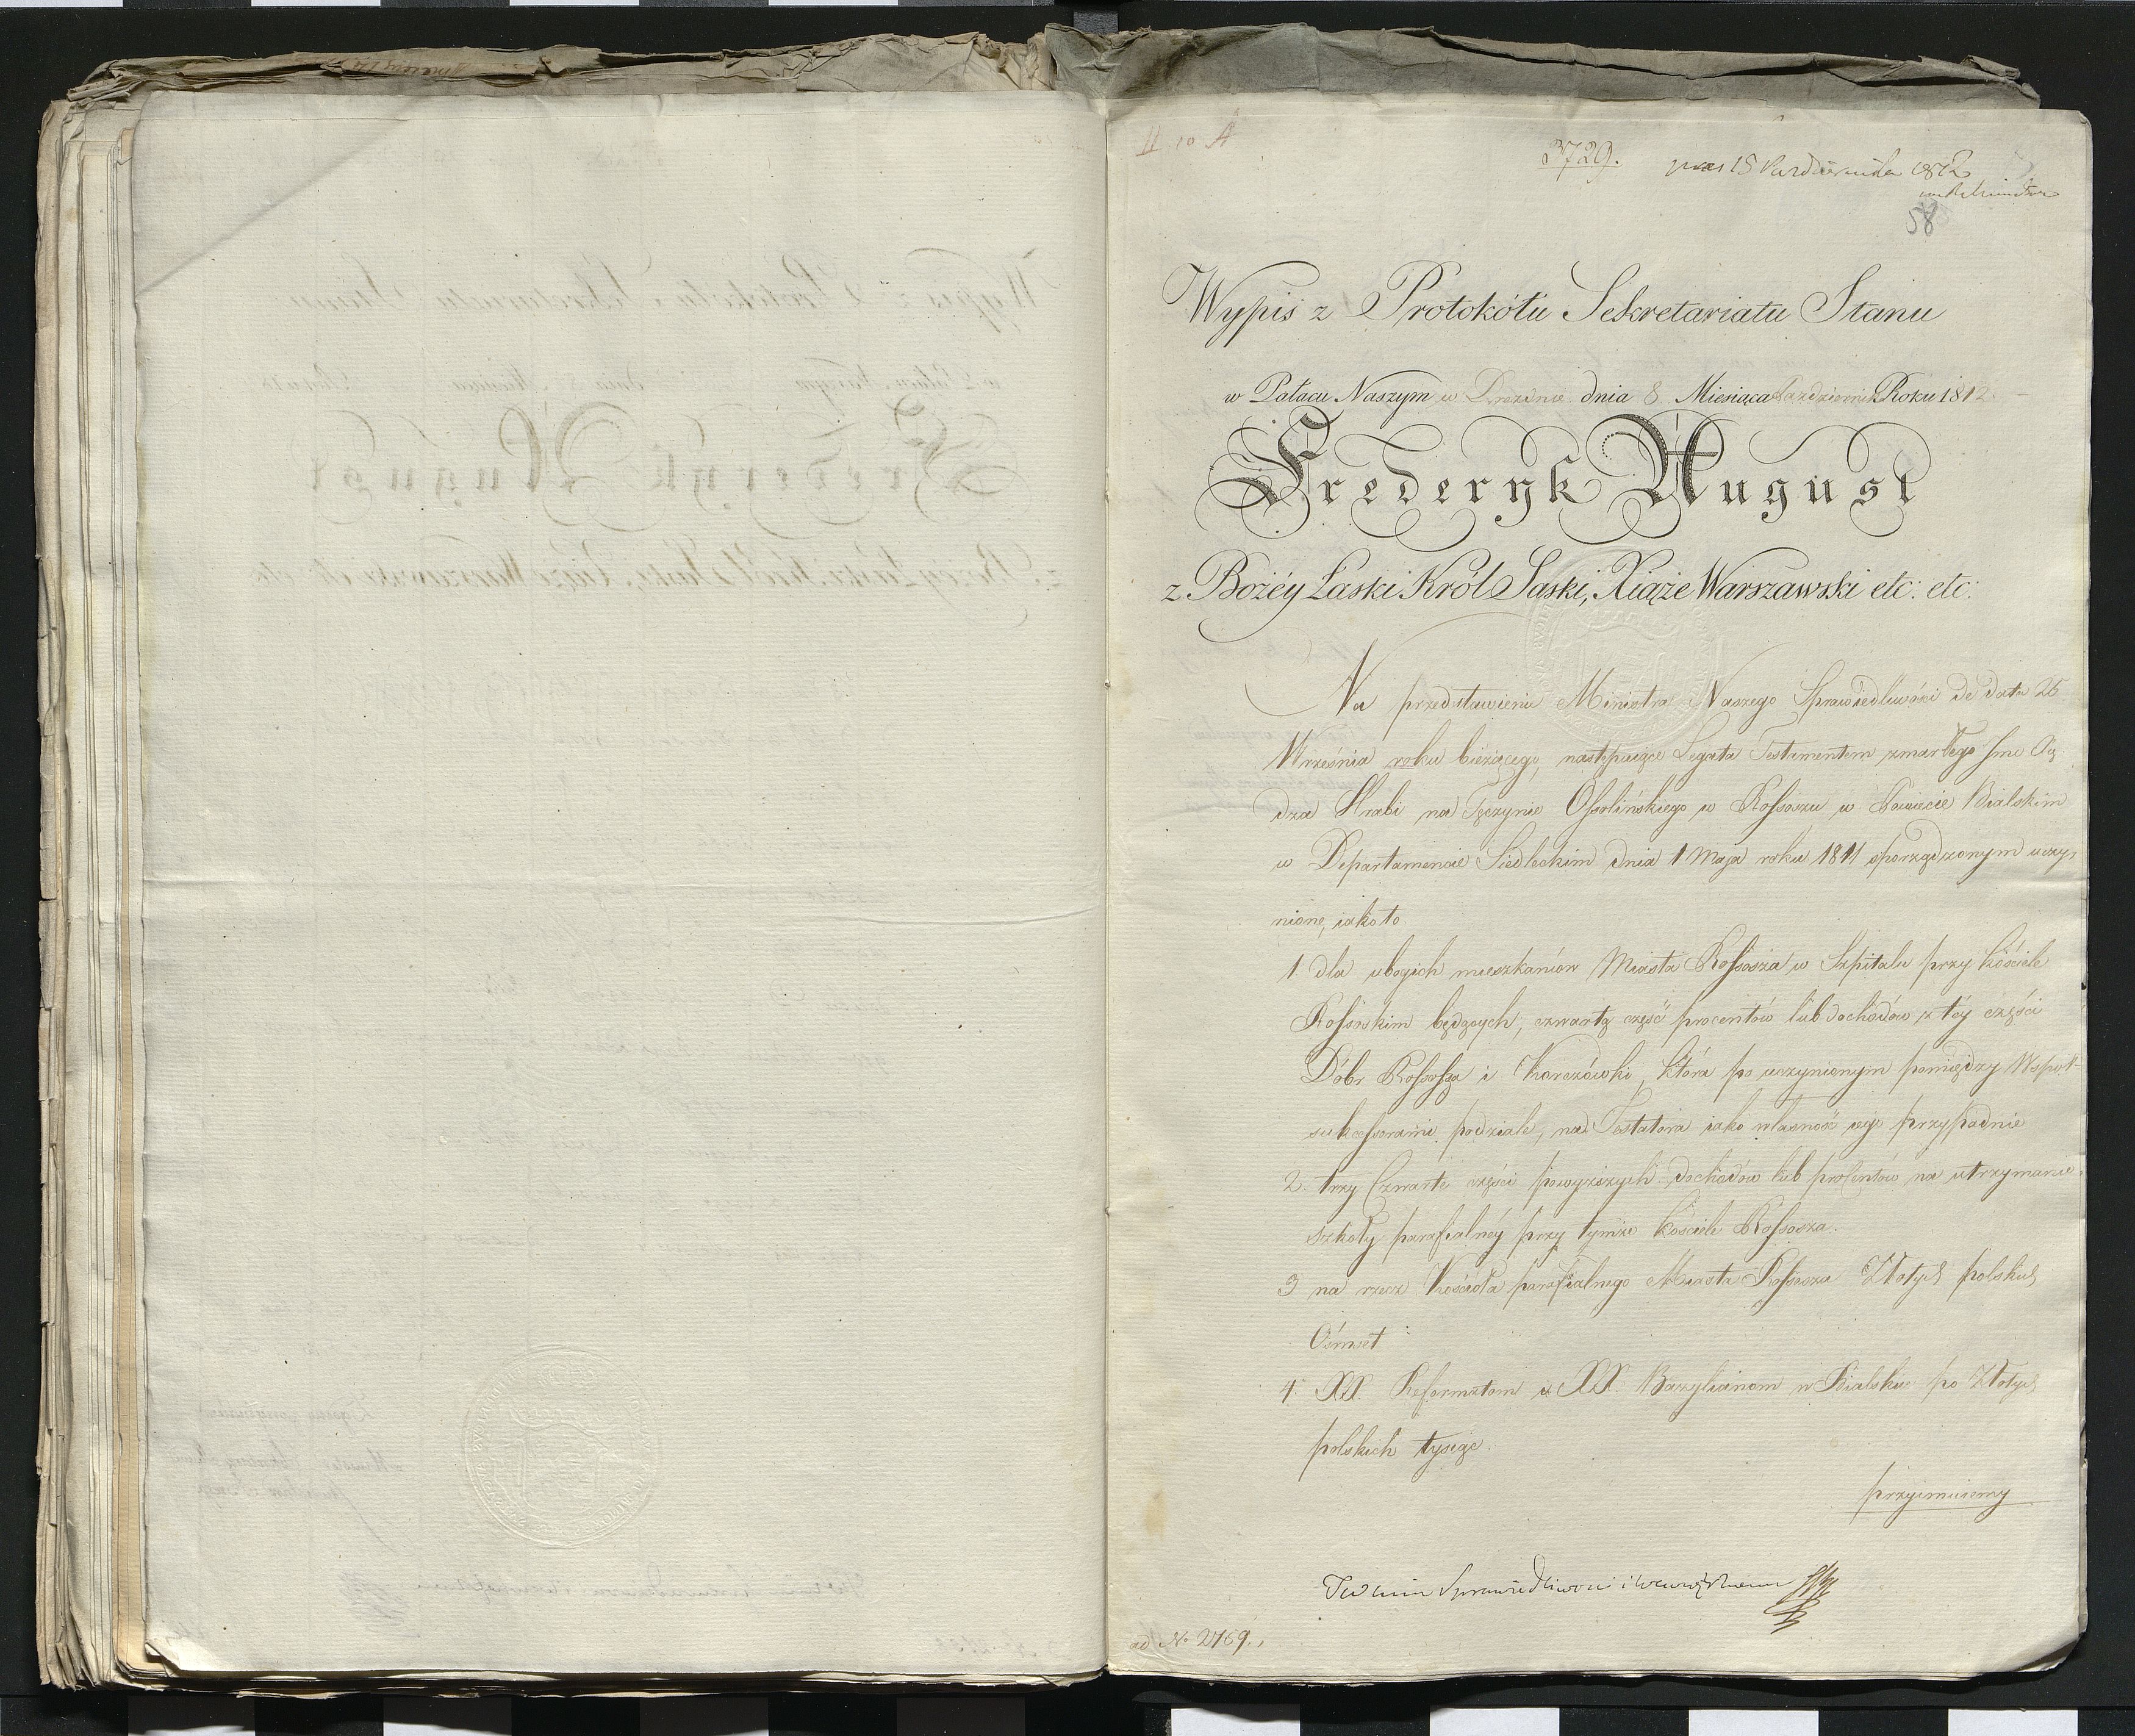 II 10 A
3729.
15 Października 1812
58
Wypis z Protokółu Sekretariatu Stanu
w Pałacu Naszym w Dreznie dnia 8 Miesiąca Październik Roku 1812.
Frederyk August
z Bożéy Łaski Król Saski, Xiąże Warszawski etc: etc:
Na przedstawienie Ministra Naszego Sprawiedliwości de dato 26
Września roku bieżącego, następuiące Legata Testamentem zmarłego
dza Hrabi na Tęczynie Ossolińskiego w Rossoszu w Powiecie Bialskim
w Departamencie Siedleckim dnia 1 Maja roku 1811 sporządzonym uczy-
nione, iako to.
1. dla ubogich mieszkańców Miasta Rossosza w Szpitalu przy kościele
Rossoskim będących, czwartą część procentów lub dochodów z téy części
Dóbr Rossosza i Korczówki, która po uczynionym pomiędzy Współ-
sukcessorami podziale, na Testatora iako własność iego przypadnie
2. trzy Czwarte części powyższych dochodów lub procentów na utrzymanie
szkoły parafialnéy przy tymże kościele Rossosza.
3 na rzecz Kościoła parafialnego Miasta Rossosza Złotych polskich
Ośmset
4. XX. Reformatom i XX. Bazylianom w Bialskie po Złotych
polskich tysiąc.
przyimuiemy
Sprawiedliwości i wewnętrznemu
ad No 2769.